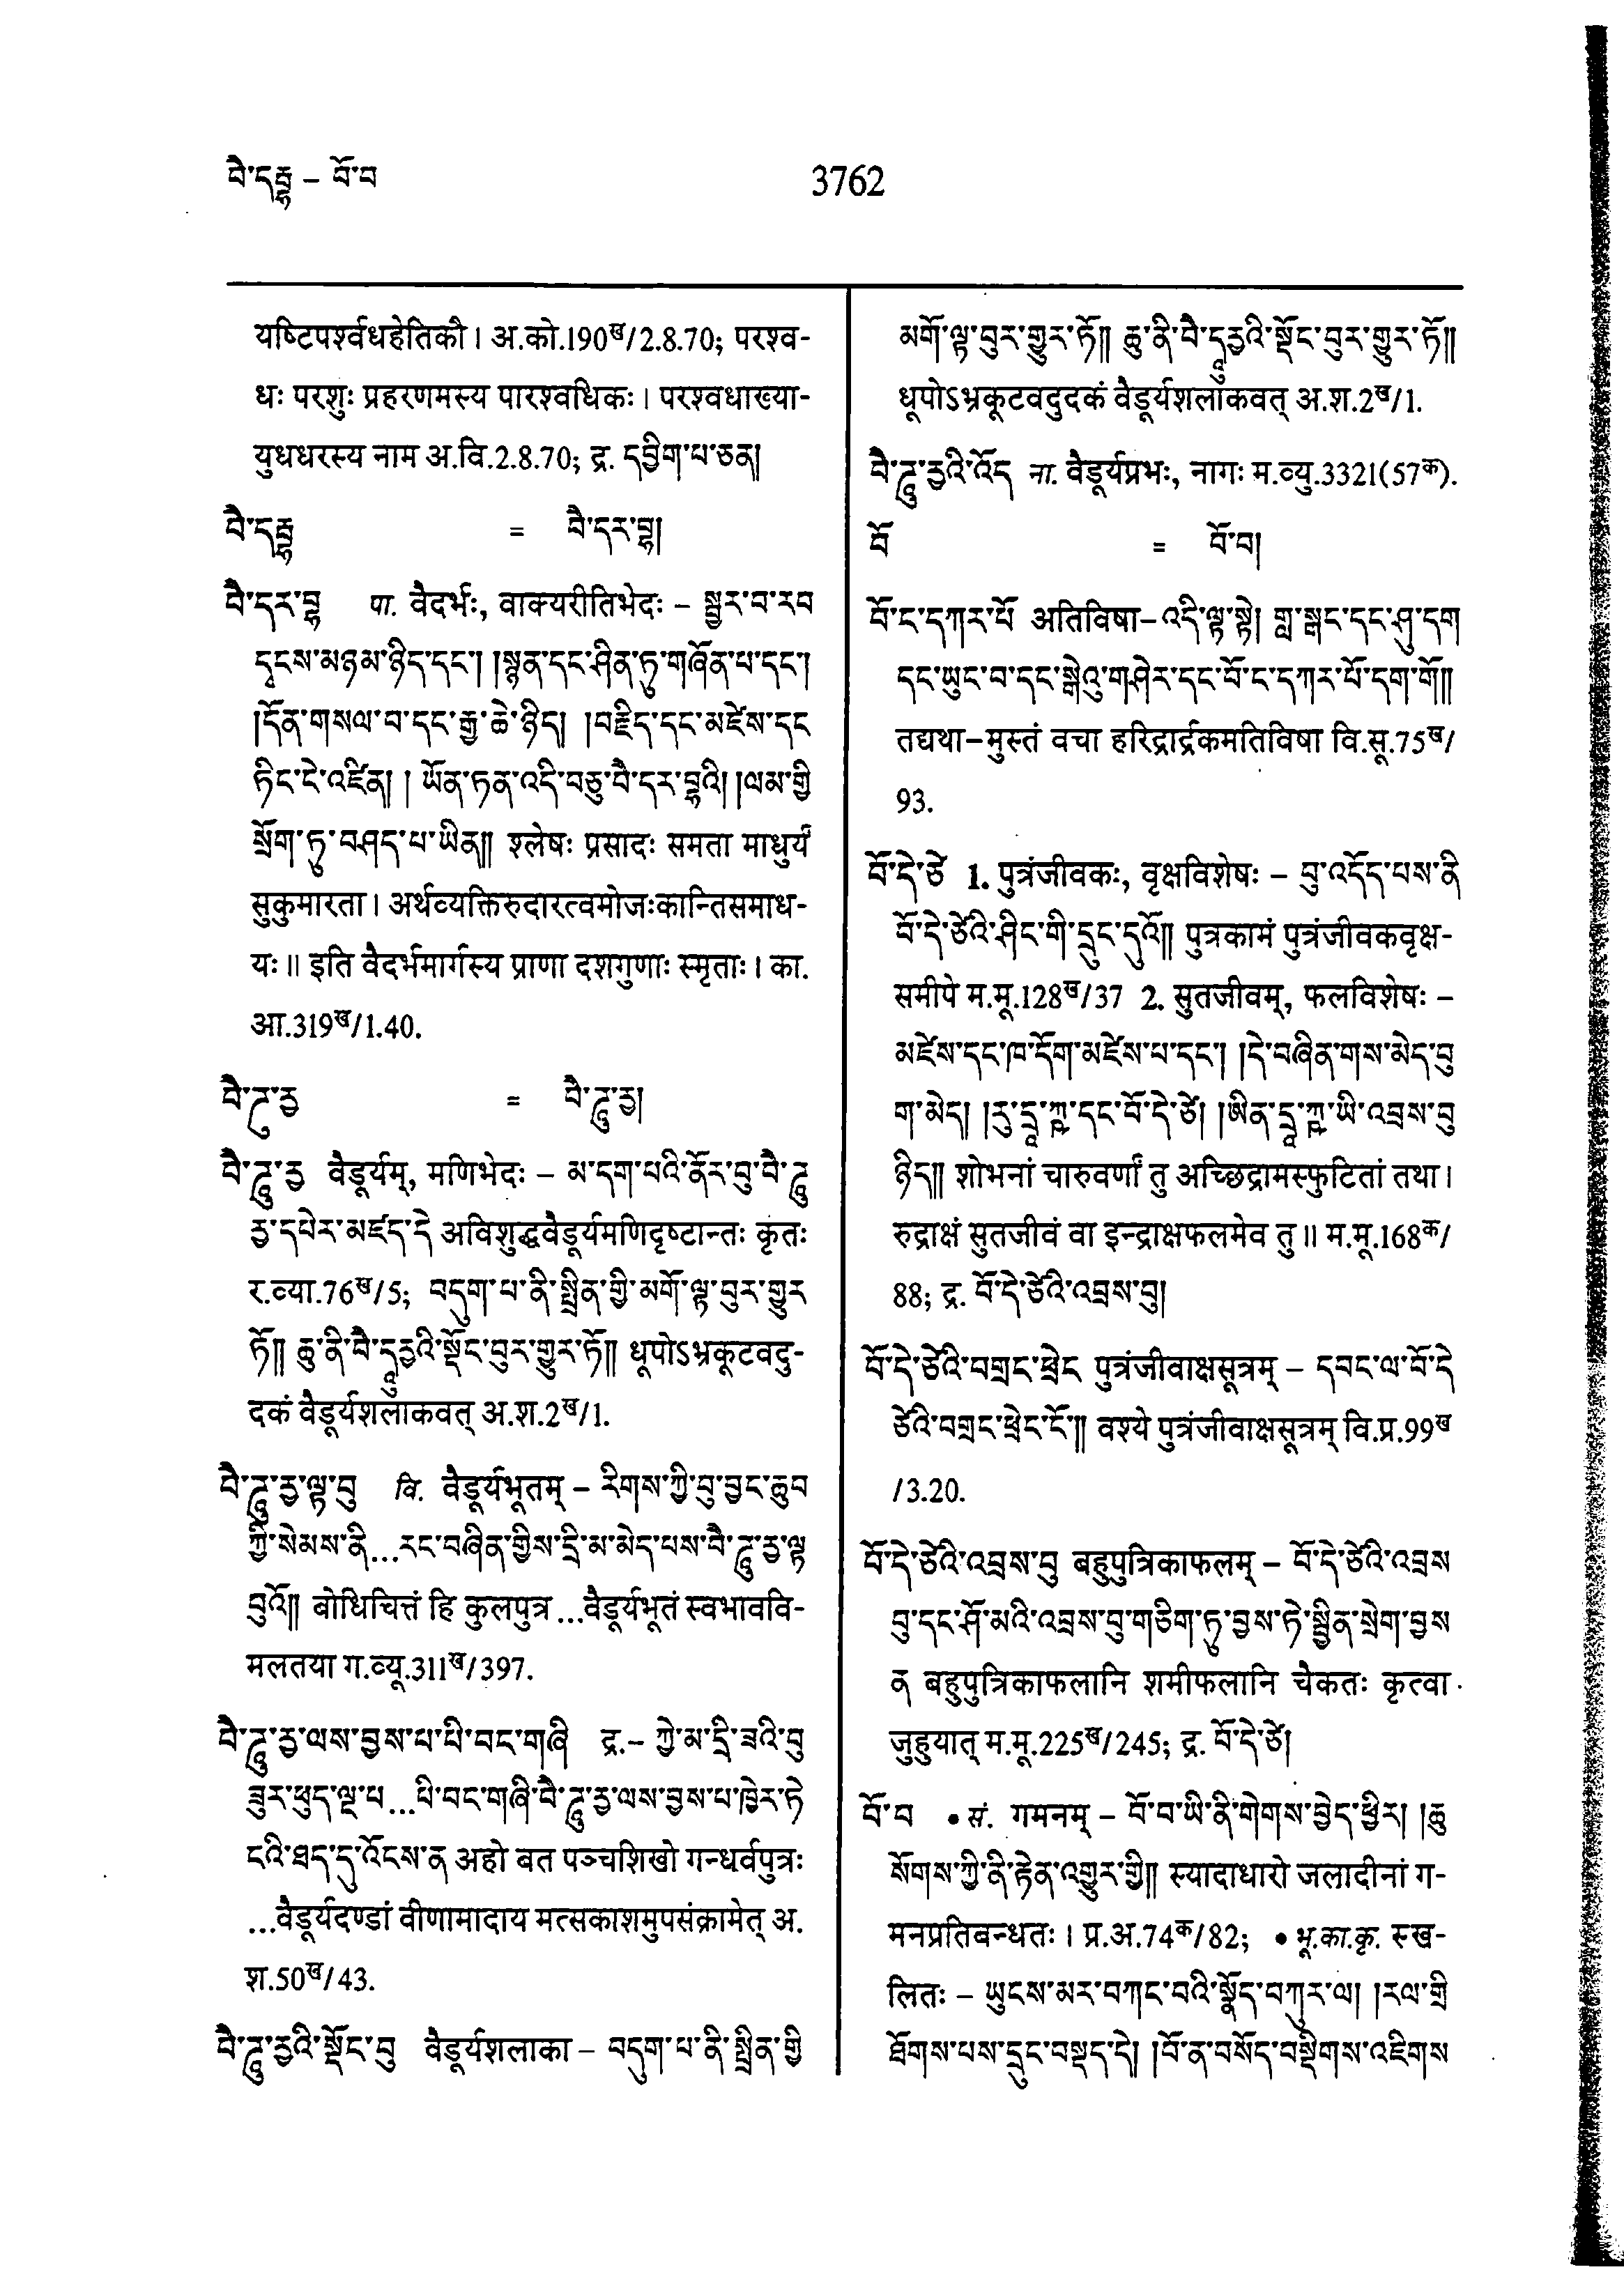 བཻ་དརྦྷ – བོ་བ
3762
यष्टिपर्श्वधहेतिकौ । अ.को.190ख/2.8.70; परश्व-
धः परशुः प्रहरणमस्य पारश्वधिकः । परश्वधाख्या-
युधधरस्य नाम अ.वि.2.8.70; द्र. དབྱིག་པ་ཅན།
བཻ་དརྦྷ = བཻ་དར་བྷ།
བཻ་དར་བྷ पा. वैदर्भः, वाक्यरीतिभेदः – སྦྱར་བ་རབ
དྭངས་མཉམ་ཉིད་དང་། །སྙན་དང་ཤིན་ཏུ་གཞོན་པ་དང་།
།དོན་གསལ་བ་དང་རྒྱ་ཆེ་ཉིད། །བརྗིད་དང་མཛེས་དང
ཏིང་ངེ་འཛིན། །ཡོན་ཏན་འདི་བཅུ་བཻ་དར་བྷའི། །ལམ་གྱི
སྲོག་ཏུ་བཤད་པ་ཡིན།། श्लेषः प्रसादः समता माधुर्यं
सुकुमारता । अर्थव्यक्तिरुदारत्वमोजःकान्तिसमाध-
यः ॥ इति वैदर्भमार्गस्य प्राणा दशगुणाः स्मृताः । का.
आ.319ख/1.40.
བཻ་ཌུ་རྱ = བཻ་ཌཱུ་རྱ།
བཻ་ཌཱུ་རྱ वैडूर्यम्, मणिभेदः – མ་དག་པའི་ནོར་བུ་བཻ་ཌཱུ
རྱ་དཔེར་མཛད་དེ अविशुद्धवैडूर्यमणिदृष्टान्तः कृतः
र.व्या.76ख/5; བདུག་པ་ནི་སྤྲིན་གྱི་མགོ་ལྟ་བུར་གྱུར
ཏོ།། ཆུ་ནི་བཻ་དཱུརྱའི་སྡོང་བུར་གྱུར་ཏོ།། धूपोऽभ्रकूटवदु-
दकं वैडूर्यशलाकवत् अ.श.2ख/1.
བཻ་ཌཱུ་རྱ་ལྟ་བུ वि. वैडूर्यभूतम् – རིགས་ཀྱི་བུ་བྱང་ཆུབ
ཀྱི་སེམས་ནི...རང་བཞིན་གྱིས་དྲི་མ་མེད་པས་བཻ་ཌཱུ་རྱ་ལྟ
བུའོ།། बोधिचित्तं हि कुलपुत्र ...वैडूर्यभूतं स्वभाववि-
मलतया ग.व्यू.311ख/397.
བཻ་ཌཱུ་རྱ་ལས་བྱས་པ་པི་བང་གཞི द्र.– ཀྱེ་མ་དྲི་ཟའི་བུ
ཟུར་ཕུད་ལྔ་པ...པི་བང་གཞི་བཻ་ཌཱུ་རྱ་ལས་བྱས་པ་ཁྱེར་ཏེ
ངའི་ཐད་དུ་འོངས་ན अहो बत पञ्चशिखो गन्धर्वपुत्रः
...वैडूर्यदण्डां वीणामादाय मत्सकाशमुपसंक्रामेत् अ.
श.50ख/43.
བཻ་ཌཱུ་རྱའི་སྡོང་བུ वैडूर्यशलाका – བདུག་པ་ནི་སྤྲིན་གྱི
མགོ་ལྟ་བུར་གྱུར་ཏོ།། ཆུ་ནི་བཻ་དཱུརྱའི་སྡོང་བུར་གྱུར་ཏོ།།
धूपोऽभ्रकूटवदुदकं वैडूर्यशलाकवत् अ.श.2ख/1.
བཻ་ཌཱུ་རྱའི་འོད ना. वैडूर्यप्रभः, नागः म.व्यु.3321(57क).
བོ = བོ་བ།
བོ་ང་དཀར་པོ अतिविषा–འདི་ལྟ་སྟེ། གླ་སྒང་དང་ཤུ་དག
དང་ཡུང་བ་དང་སྒེའུ་གཤེར་དང་བོ་ང་དཀར་པོ་དག་གོ།།
तद्यथा–मुस्तं वचा हरिद्रार्द्रकमतिविषा वि.सू.75ख/
93.
བོ་དེ་ཙེ 1. पुत्रंजीवकः, वृक्षविशेषः – བུ་འདོད་པས་ནི
བོ་དེ་ཙེའི་ཤིང་གི་དྲུང་དུའོ།། पुत्रकामं पुत्रंजीवकवृक्ष-
समीपे म.मू.128ख/37 2. सुतजीवम्, फलविशेषः –
མཛེས་དང་ཁ་དོག་མཛེས་པ་དང་། །དེ་བཞིན་གས་མེད་བུ
ག་མེད། །རུ་དྲཱ་ཀྵ་དང་བོ་དེ་ཙེ། །ཨིན་དྲཱ་ཀྵ་ཡི་འབྲས་བུ
ཉིད།། शोभनां चारुवर्णां तु अच्छिद्रामस्फुटितां तथा ।
रुद्राक्षं सुतजीवं वा इन्द्राक्षफलमेव तु ॥ म.मू.168क/
88; द्र. བོ་དེ་ཙེའི་འབྲས་བུ།
བོ་དེ་ཙེའི་བགྲང་ཕྲེང पुत्रंजीवाक्षसूत्रम् – དབང་ལ་བོ་དེ
ཙེའི་བགྲང་ཕྲེང་ངོ་།། वश्ये पुत्रंजीवाक्षसूत्रम् वि.प्र.99ख
/3.20.
བོ་དེ་ཙེའི་འབྲས་བུ बहुपुत्रिकाफलम् – བོ་དེ་ཙེའི་འབྲས
བུ་དང་ཤོ་མའི་འབྲས་བུ་གཅིག་ཏུ་བྱས་ཏེ་སྦྱིན་སྲེག་བྱས
ན बहुपुत्रिकाफलानि शमीफलानि चैकतः कृत्वा
जुहुयात् म.मू.225ख/245; द्र. བོ་དེ་ཙེ།
བོ་བ • सं. गमनम् – བོ་བ་ཡི་ནི་གེགས་བྱེད་ཕྱིར། །ཆུ
སོགས་ཀྱི་ནི་རྟེན་འགྱུར་གྱི།། स्यादाधारो जलादीनां ग-
मनप्रतिबन्धतः । प्र.अ.74क/82; • भू.का.कृ. स्ख-
लितः – ཡུངས་མར་བཀང་བའི་སྣོད་བཀུར་ལ། །རལ་གྲི
ཐོགས་པས་དྲུང་བསྡད་དེ། །བོ་ན་བསོད་བསྡིགས་འཇིགས